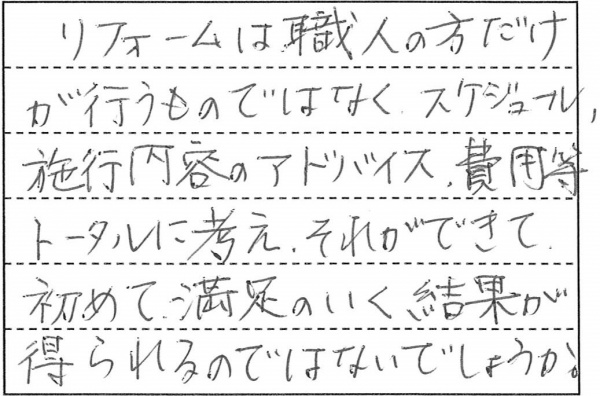 リフォームは、職人の方だけ
が行うものではなく、スケジュール、
施行内容のアドバイス、費用等
トータルに考え、それができて、
初めて、満足のいく、結果が
得られるのではないでしょうか。